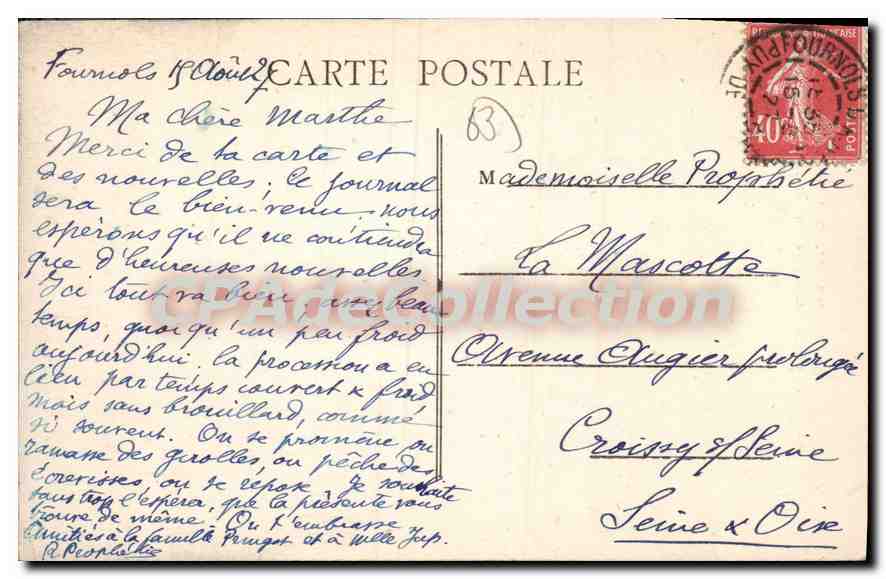 CARTE POSTALE
Fournols 15 Août 27
Ma chère Marthe
Merci de ta carte et
des nouvelles. Ce journal
sera le bien-venu. nous
espérons qu'il ne contiendra
que d'heureuses nouvelles.
Ici tout va bien, assez beau
temps, quoiqu'un peu froid
aujourd'hui, la procession a eu
lieu par temps couvert & froid
mais sans brouillard, comme
si souvent. On se promène, on
ramasse des girolles, on pêche des
écrevisses, on se repose. Je souhaite
sans trop l'espérer, que la présente vous
trouve de même. On t'embrasse
Amitiés à la famille et à Melle
R Prophétie
63
Mademoiselle Prophétie
La Mascotte
Avenue Augier prolongée
Croissy s/ Seine
Seine & Oise
FOURNOLS
PUY-DE
40c
POSTES
CPAdeCollection